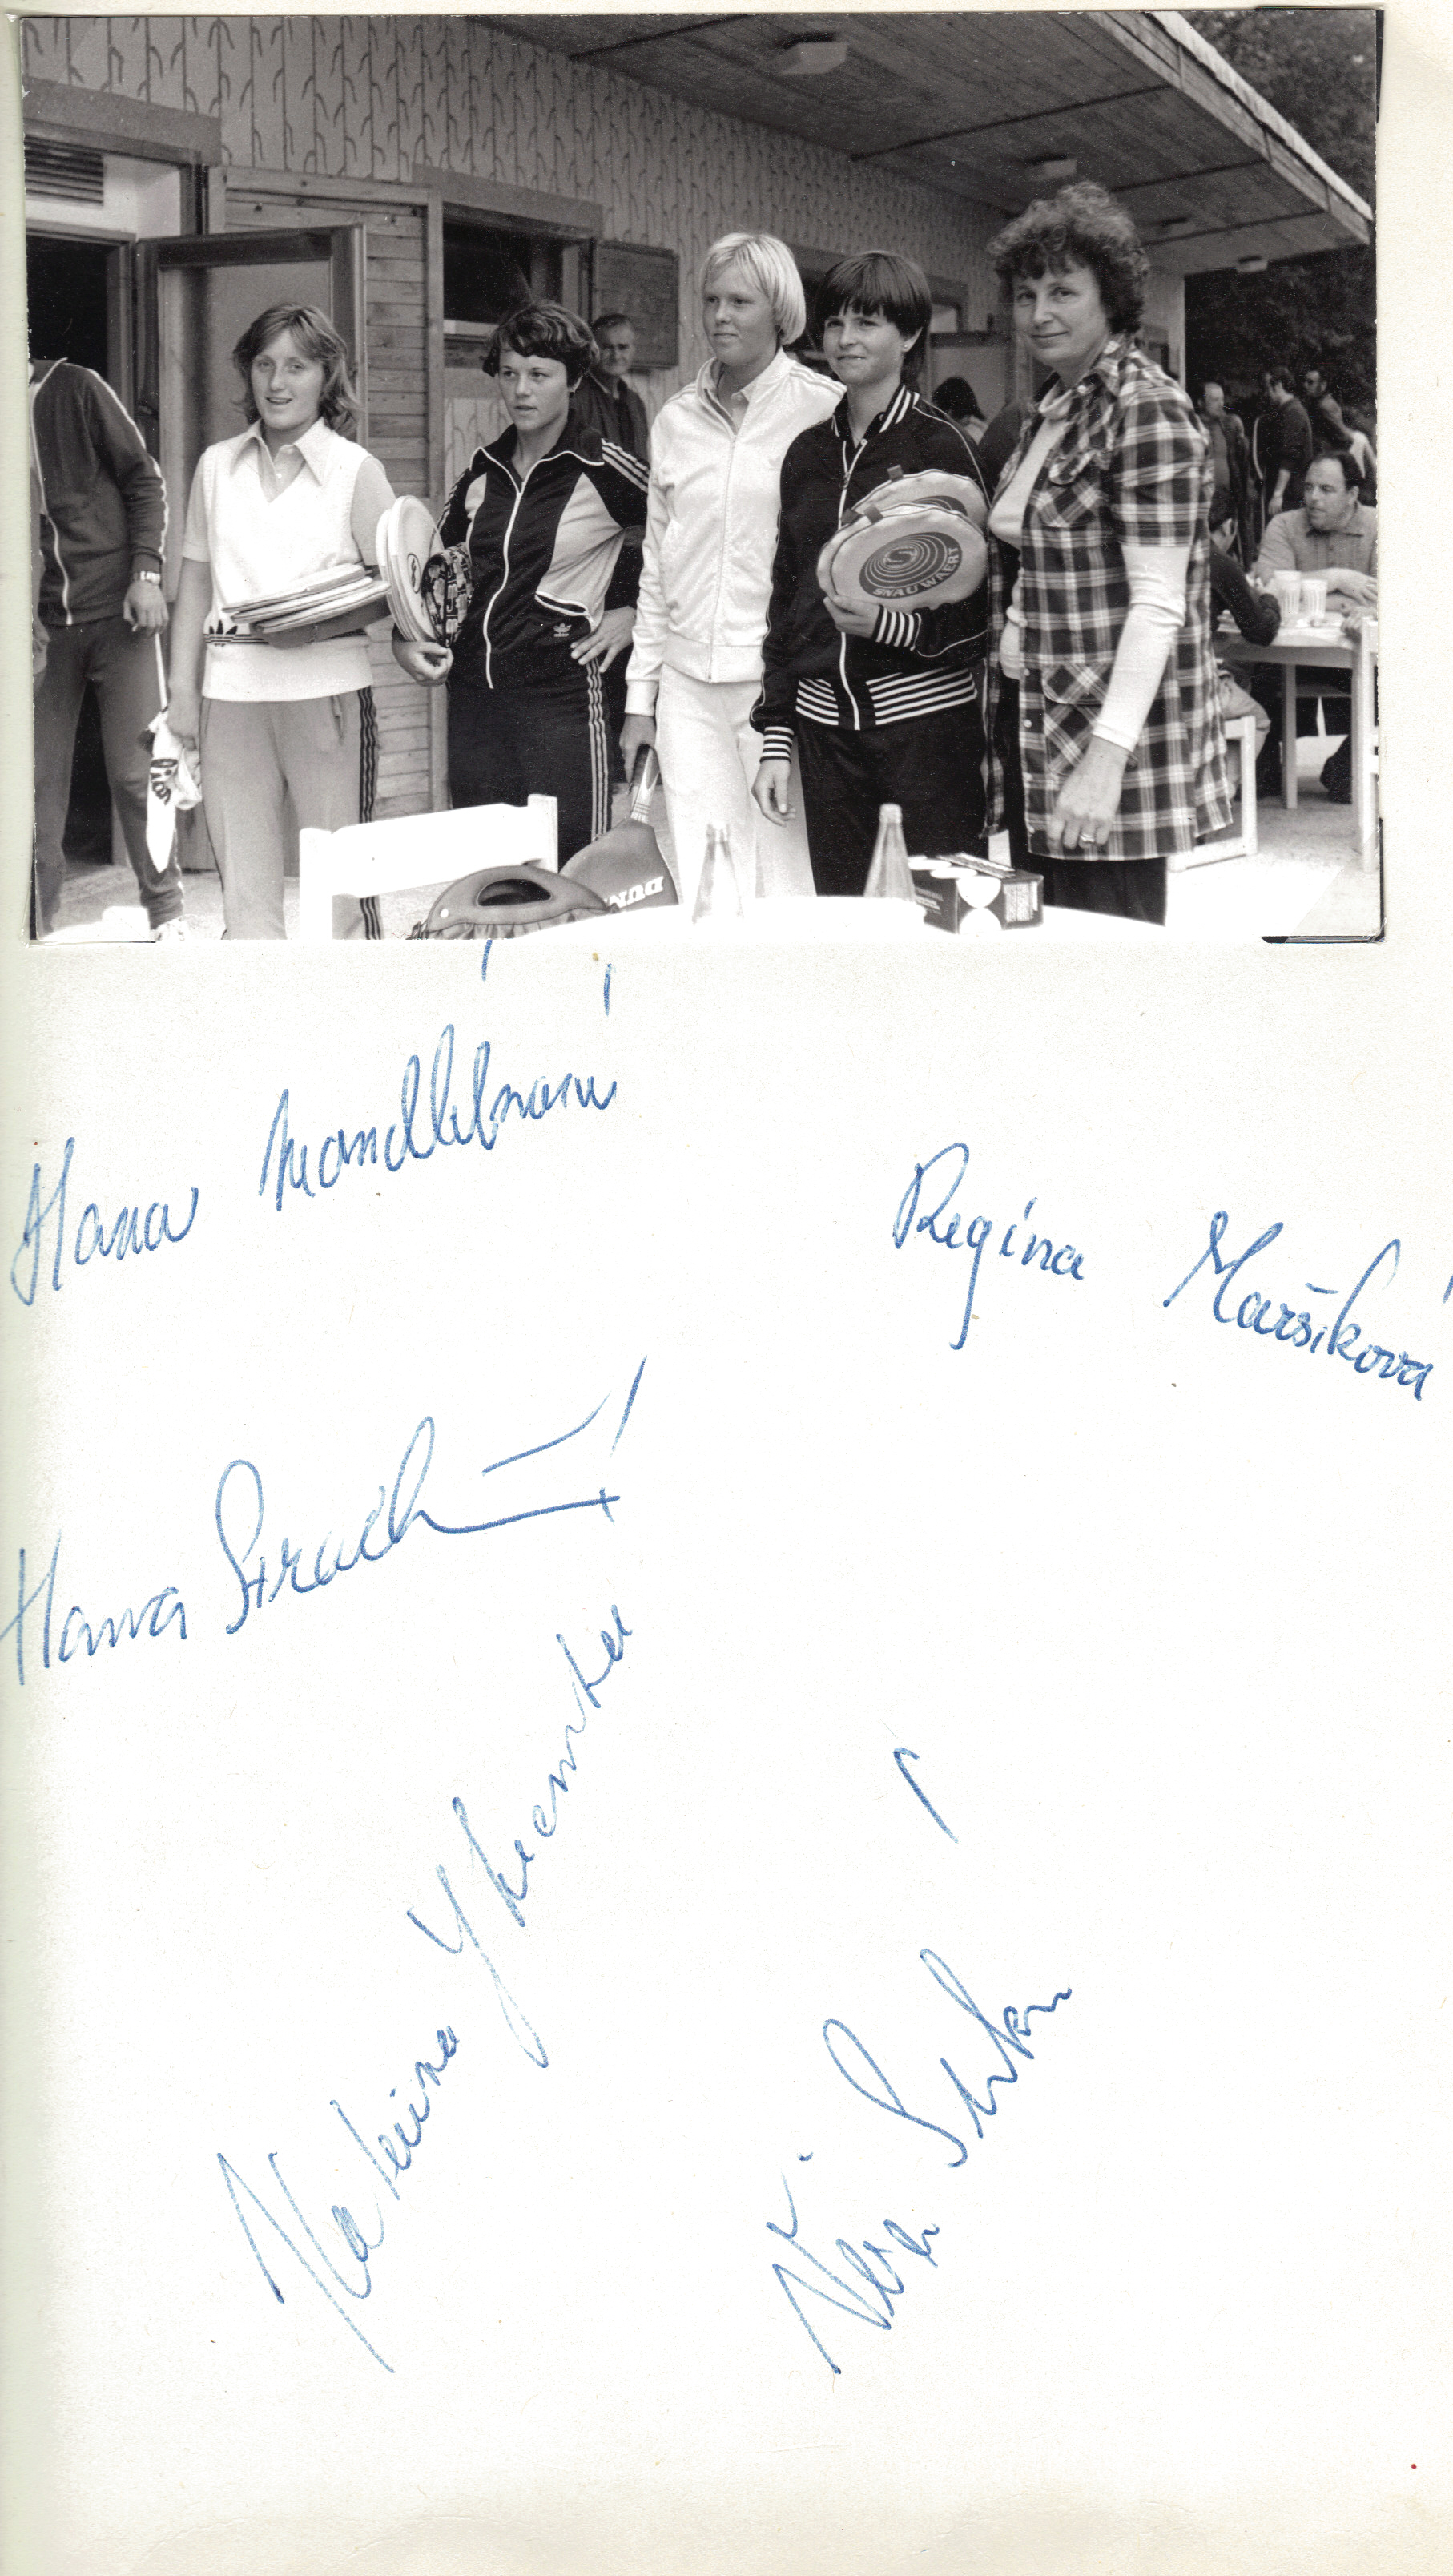 S
SNAUWAERT
adidas
Hana Mandlíková
Regina Maršíková
Hana Strachoňová
Kateřina Skronská
Věra Suková